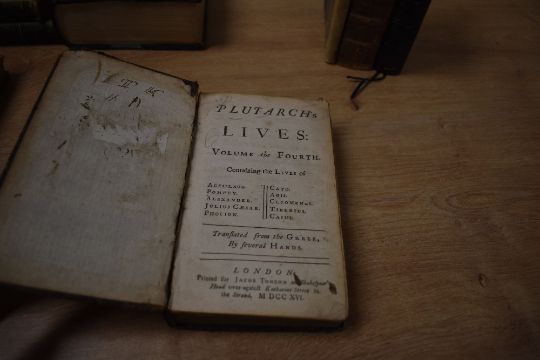 PLUTARCH's
LIVES:
VOLUME the FOURTH.
Containing the LIVES of
AGESILAUS.
POMPEY.
ALEXANDER.
JULIUS CÆSAR.
PHOCION.
CATO.
AGIS.
CLEOMENES.
TIBERIUS.
CAIUS.
Tranſlated from the GREEK,
By ſeveral HANDS.
LONDON,
Printed for JACOB TONSON at Shakeſpear's
Head over-againſt Katharine Street in
the Strand. M DCC XVI.